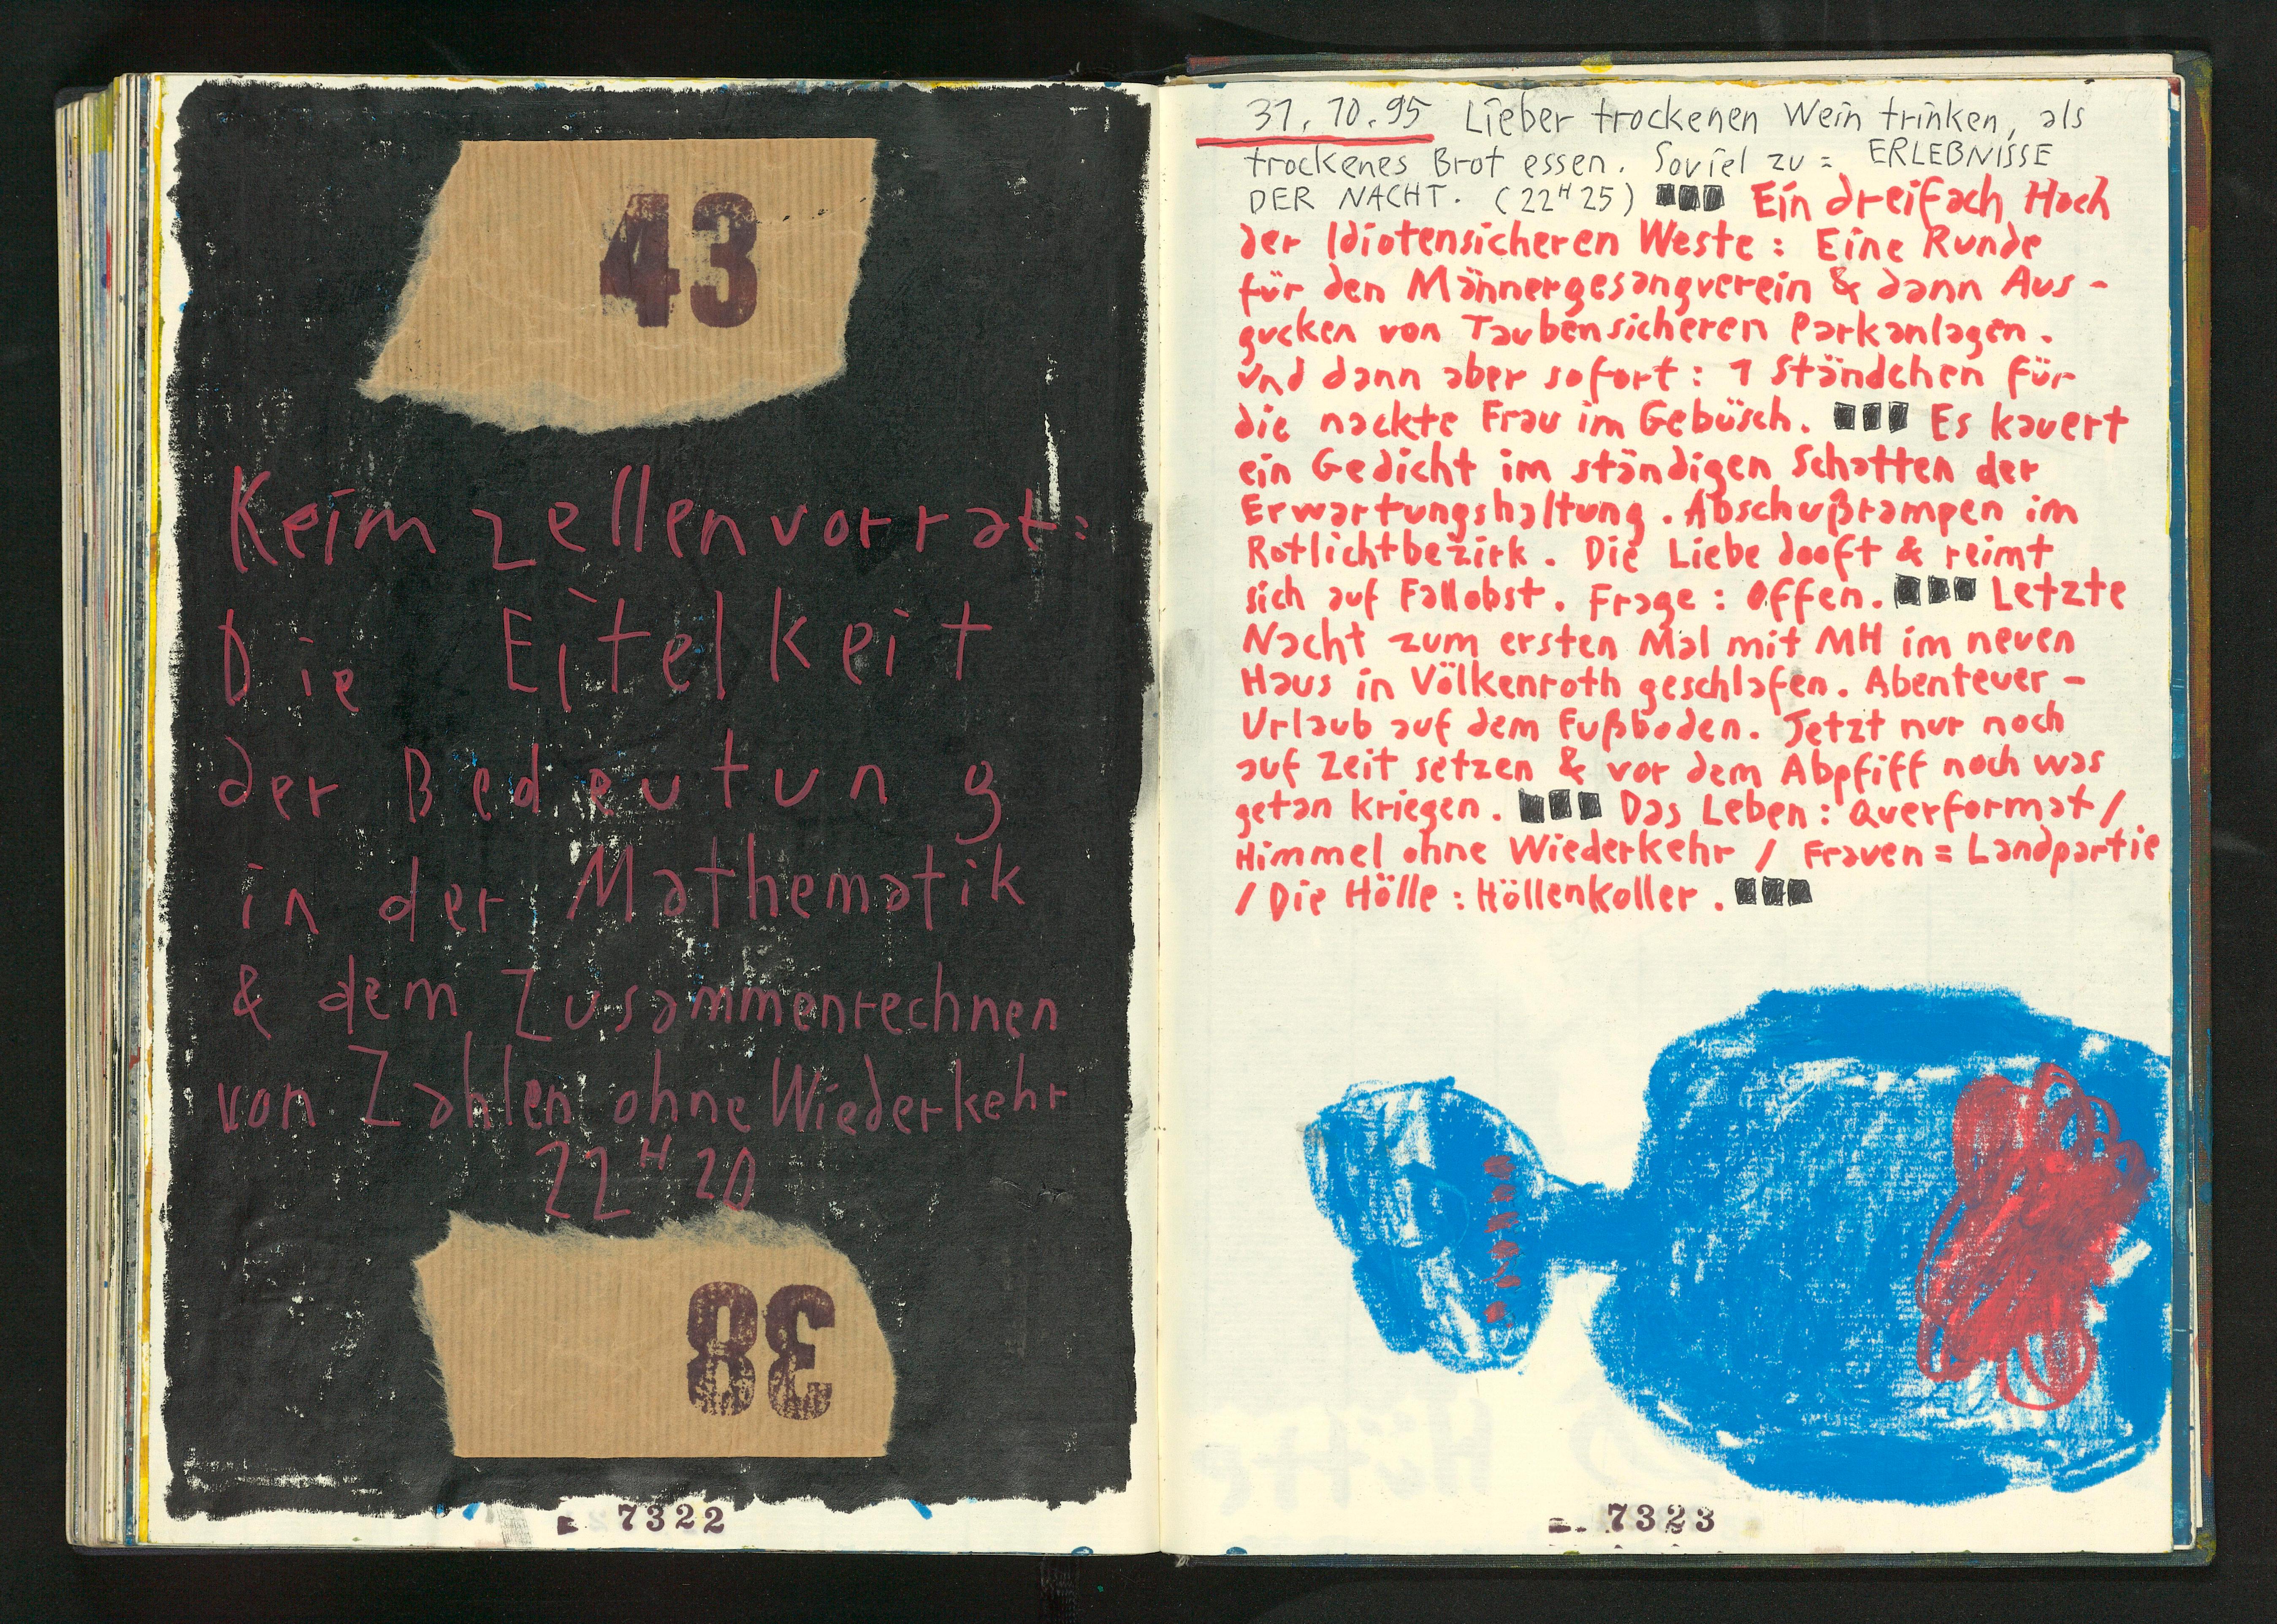 43
Keimzellenvorrat:
Die Eitelkeit
der Bedeutung
in der Mathematik
& dem Zusammenrechnen
von Zahlen ohne Wiederkehr
22H20
38
7322
31.10.95 Lieber trockenen Wein trinken, als
trockenes Brot essen. Soviel zu = ERLEBNISSE
DER NACHT. (22H25) ■■■ Ein dreifach Hoch
der Idiotensicheren Weste: Eine Runde
für den Männergesangverein & dann Aus-
gucken von Taubensicheren Parkanlagen.
Und dann aber sofort: 1 Ständchen für
die nackte Frau im Gebüsch. ■■■ Es kauert
ein Gedicht im ständigen Schatten der
Erwartungshaltung. Abschußrampen im
Rotlichtbezirk. Die Liebe dooft & reimt
sich auf Fallobst. Frage: Offen. ■■■ Letzte
Nacht zum ersten Mal mit MH im neuen
Haus in Völkenroth geschlafen. Abenteuer-
Urlaub auf dem Fußboden. Jetzt nur noch
auf Zeit setzen & vor dem Abpfiff noch was
getan kriegen. ■■■ Das Leben: Querformat /
Himmel ohne Wiederkehr / Frauen = Landpartie
/ Die Hölle: Höllenkoller. ■■■
7323